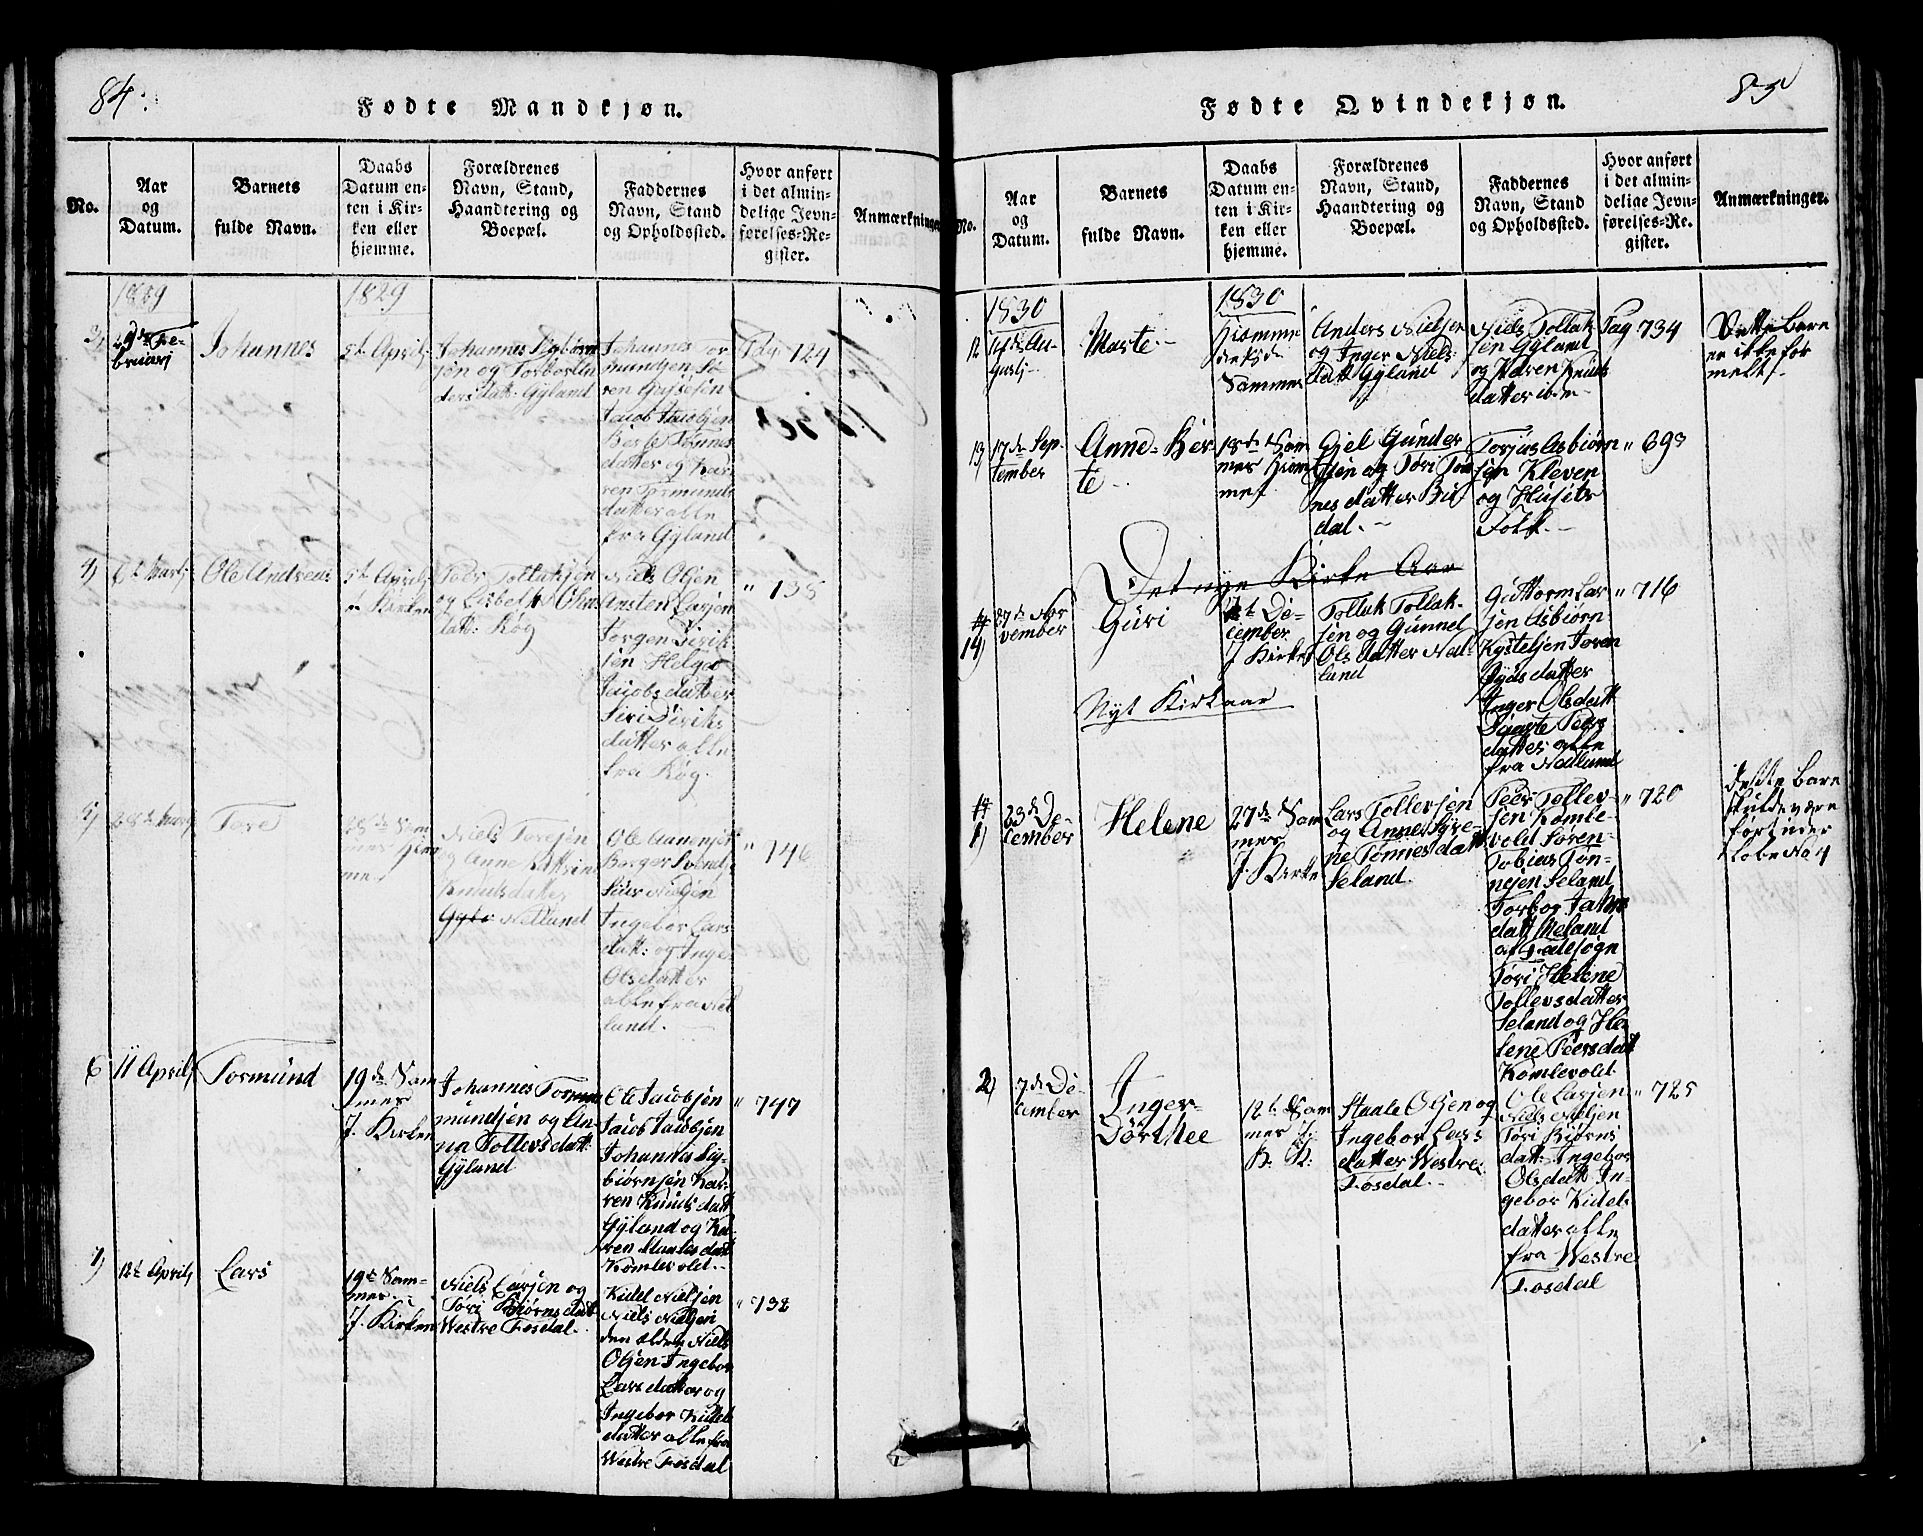 84.
Fødte Mandkjøn.
No.
Aar
og
Datum.
Barnets
fulde Navn.
Daabs
Datum en-
ten i Kir-
ken eller
hjemme.
Forældrenes
Navn, Stand,
Haandtering og
Boepæl.
Faddernes
Navn, Stand
og Opholdssted.
Hvor anført
i det almin-
delige Jevn-
førelses-Re-
gister.
Anmærkninger
1829
1829
3)
Februarj
Johannes
5t Aprilj
Johannes Sigbiørn
sen og Torbor
dersdatt: Gyland
Johannes Tor
mundsen Sø-
ren Gysesen
Jacob Jacobsen
Berte Tønnes
datter og Kar-
ren Tormunds
datter alle
fra Gyland
Pag 124
4)
Martj
Ole Andreas
5t Aprilj
i Kirken
Peer Tollaksen
og Lisbeth Olsa
datt: Røg
Niels Olsen
Ansten Larsen
Jørgen Dirik
sen Helge
Jacobsdatter
Siri Diriks
datter alle
fra Røg.
" 135
5)
28de Martj
Tore
28de Sam
mes Hiem
me
Niels Toresen
og Anne Kattrine
Knudsdatter
Netland
Ole Aanensen
Børger Svends
Siur Nielsen
Ingebor Lars
datt: og Inger
Olsdatter
alle fra Net
land.
" 746
6
11 Aprilj
Tormund
19de Sam
mes
I. Kirken
Johannes Torm
mundsen og An-
na Tollevsdatt
Gyland
Ole Jacobsen
Jacob Jacobsen
Johannes Sig-
biørnsen Kar-
ren Knudsdatt
Gyland og Ka-
ren Staalesdatt
Komlevold.
" 747
7)
12t Aprilj
Lars
19t Sam-
mes
I. Kirken
Niels Larsen og
Tøri Biørnsdatt
Westre Fosdal.
Kidel Nielsen
Niels Nielsen
den ældre Niels
Olsen Ingebor
Larsdatter og
Ingebor Kidels
datter alle fra
Westre Fosdal
85
Fødte Qvindekjøn.
No.
Aar
og
Datum.
Barnets
fulde Navn.
Daabs
Datum en-
ten i Kir-
ken eller
hjemme.
Forældrenes
Navn, Stand,
Haandtering og
Boepæl.
Faddernes
Navn, Stand
og Opholdssted.
Hvor anført
i det almin-
delige Jevn-
førelses-Re-
gister.
Anmærkninger.
1830
1830
12
14de Au-
gustj
Marte
Hiemme
døbt de
Sammes
Anders Nielsen
og Inger Niels
datt Gyland
Niels Tollak
sen Gyland
og Karen Knuds
datter ibm
Pag 734
Dette barn
er ikke for
melt
13)
17de Sep-
tember
Anne Ber-
te
18de Sam
mes Hiem
me
Giel Gunder
sen og Tøri Tøn
nesdatter Bu
dal.
Torjus Asbiørn
sen Kleven
og Husets
Folk.
" 693
Det nye Kirke Aar
14)
27de No-
vember
Guri
De-
cember
I Kirken
Tollak Tollak-
sen og Gunnel
Olsdatter Net-
land
Guttorm Lar
sen Asbiørn
Kystelsen Joren
datter
Inger Olsdatt
Marte Peers
datter alle
fra Netland
" 716
Nyt Kirkaar
1)
23de De-
cember
Helene
27de Sam
mes
I. Kirke
Lars Tollevsen
og Anne Syre-
ne Tønnesdatt
Seland.
Peer Tollev-
sen Komle-
vold Søren
Tobias Tøn-
nesen Seland
Torbor Jahns
datt
af sogn
Tøri Helene
Tollevsdatter
Seland og He-
lene Peersdatt
Komlevold.
" 720
dette barn
skulde være
ført under
løbe No 4
2)
7de De-
cember
Inger
Dørthee
12te Sam
mes I.
K. K:
Staale Olsen og
Ingebor Lars
datter Westre
Fosdal.
Ole Larsen
Niels Nielsen
Tøri Biørns
datt. Ingebor
Olsdatt In-
gebor Kidels
datter alle
fra Westre
Fosdal
" 725
" 732